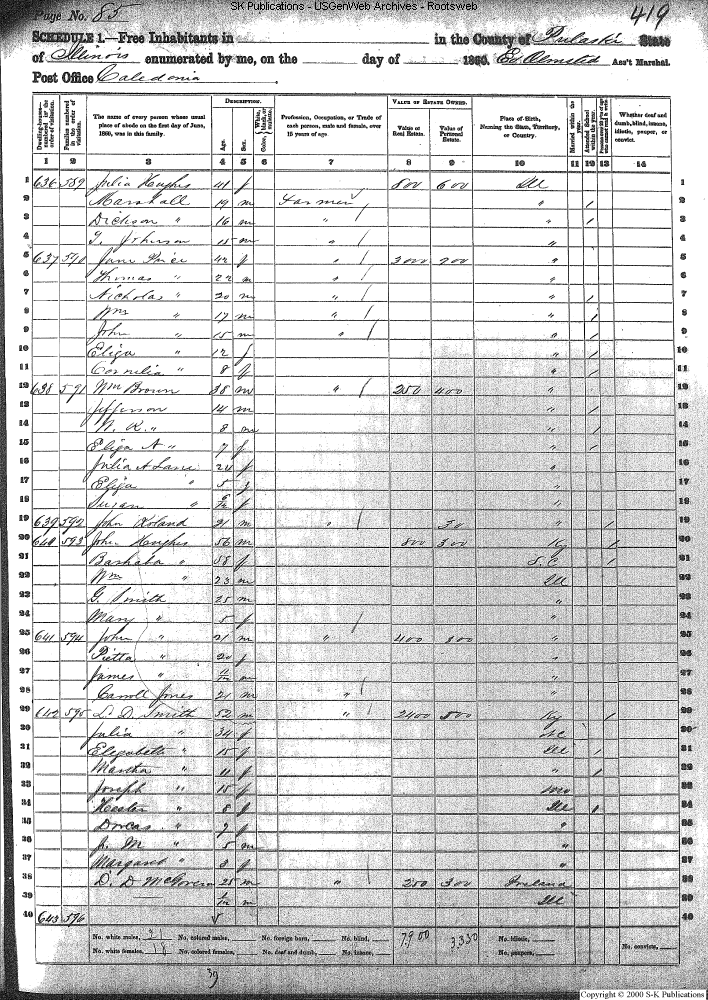 SK Publications - USGenWeb Archives - Rootsweb
Page No. 85 419
SCHEDULE 1.—Free Inhabitants in in the County of Pulaski State
of Illinois enumerated by me, on the day of 1860. Ed Olmsted Ass't Marshal.
Post Office Caledonia
DESCRIPTION. VALUE OF ESTATE OWNED.
Dwelling-houses—numbered in the order of visitation. Families numbered in the order of visitation. The name of every person whose usual place of abode on the first day of June, 1860, was in this family. Age. Sex. Color, White, black, or mulatto. Profession, Occupation, or Trade of each person, male and female, over 15 years of age. Value of Real Estate. Value of Personal Estate. Place of Birth, Naming the State, Territory, or Country. Married within the year. Attended School within the year. Whether deaf and dumb, blind, insane, idiotic, pauper, or convict.
1 2 3 4 5 6 7 8 9 10 11 12 13 14
1 636 589 Julia Hughes 41 f 800 600 Ill 1
2 Marshall 19 m Farmer / " / 2
3 Dickson " 16 m " / " / 3
4 T. Johnson 15 m " / " 4
5 637 590 Jane Price 42 f " / 3000 900 " 5
6 Thomas " 22 m " / " 6
7 Nicholas " 20 m " / " / 7
8 Wm " 17 m " / " / 8
9 John " 15 m " / " / 9
10 Eliza " 12 f " / 10
11 Cornelia " 8 f " / 11
12 638 591 Wm Brown 38 m " / 250 400 " 12
13 Jefferson 14 m " / 13
14 " 8 m " / 14
15 Eliza A " 7 f " / 15
16 Julia A Lane 24 f " 16
17 Eliza " 5 f " 17
18 Susan " f " 18
19 639 592 John 21 m " / 50 " / 19
20 640 593 John Hughes 56 m 800 300 Ky / 20
21 " 58 f S. C / 21
22 Wm " 23 m Ill 22
23 G. Smith 25 m " 23
24 Mary " 5 f " 24
25 641 594 John " 21 m " 400 " 25
26 " 20 f " 26
27 James " m " 27
28 Carroll Jones 21 m " / " 28
29 642 595 L. D. Smith 52 m " / 2400 800 Ky / 29
30 Julia 34 f 30
31 Elizabeth " 15 f Ill / 31
32 Martha " 11 f " / 32
33 Joseph " 18 f 33
34 Hester " 8 f Ill / 34
35 Dorcas " 7 f " 35
36 M " 5 m " 36
37 Margaret " f " 37
38 D. D McGovern 25 m " / 250 300 Ireland 38
39 m Ill 39
40 643 596 40
No. white males, 21 No. colored males, No. foreign born, No. blind, 7,900 3,350 No. idiotic, No. convicts,
No. white females, 18 No. colored females, No. deaf and dumb, No. insane, No. paupers,
39
Copyright © 2000 S-K Publications